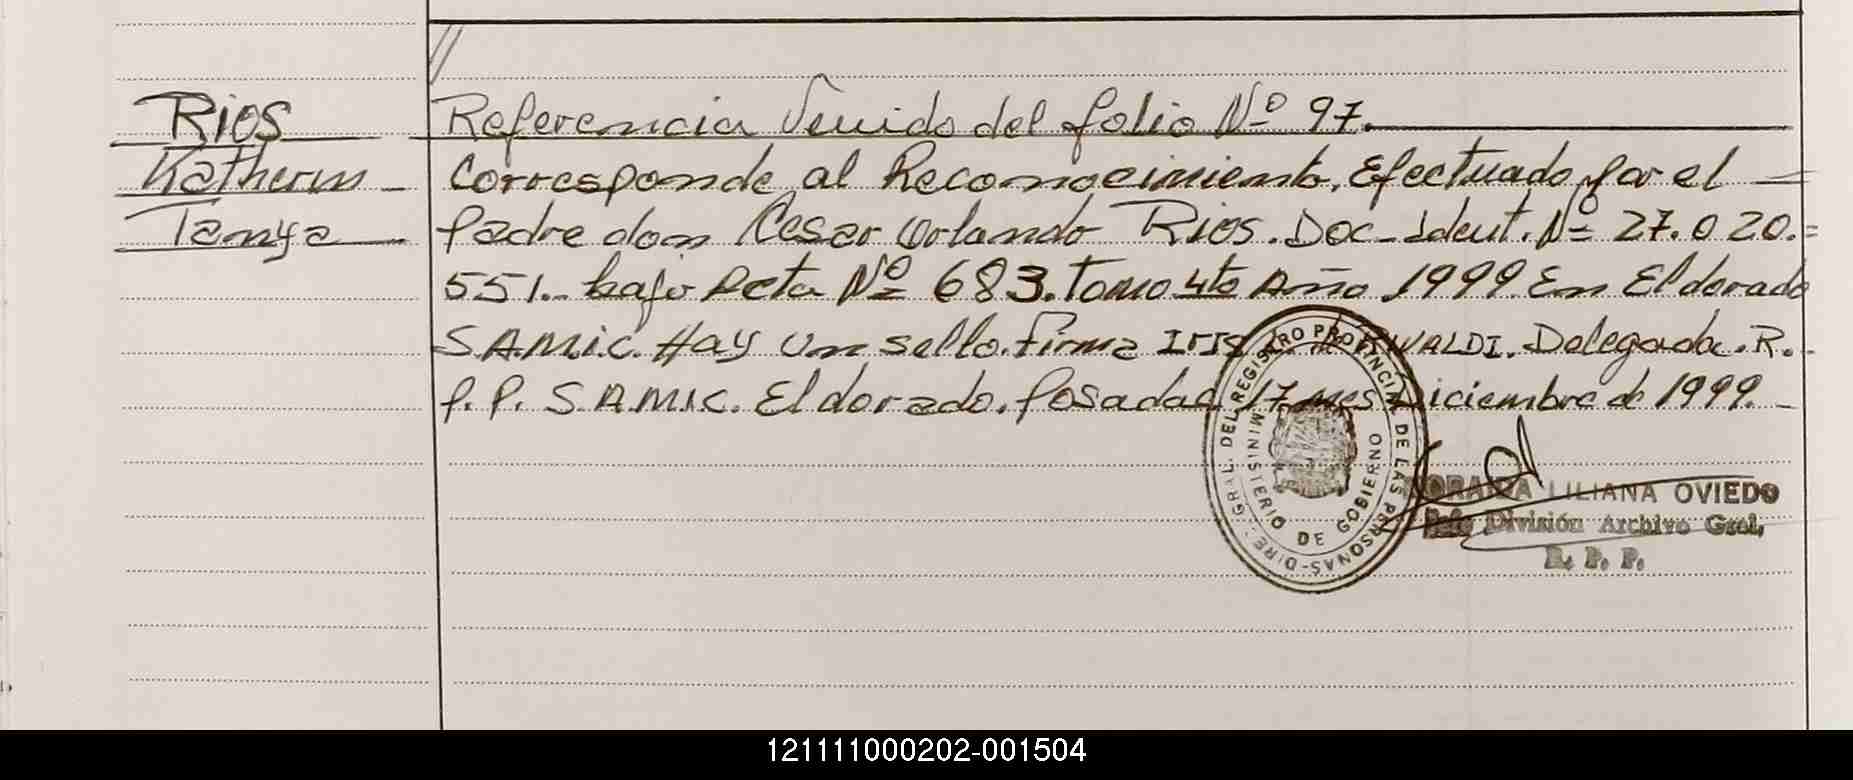 Rios
Katherin
Tanya
Referencia Venido del folio Nº 97.
Corresponde al Reconocimiento. Efectuado por el
Padre don Cesar Orlando Rios. Doc. Ident. Nº 27.020.=
551.- bajo Acta Nº 683. Tomo 4to Año 1999. En Eldorado
S.A.M.i.C. Hay un sello. firma Iris. Delegada. R.
P. P. S.A.M.I.C. Eldorado. Posadas 17 mes Diciembre de 1999.
DIREC. GRAL. DEL REGISTRO PROVINCIAL DE LAS PERSONAS
MINISTERIO DE GOBIERNO
LILIANA OVIEDO
Jefe División Archivo Gral.
R. P. P.
121111000202-001504